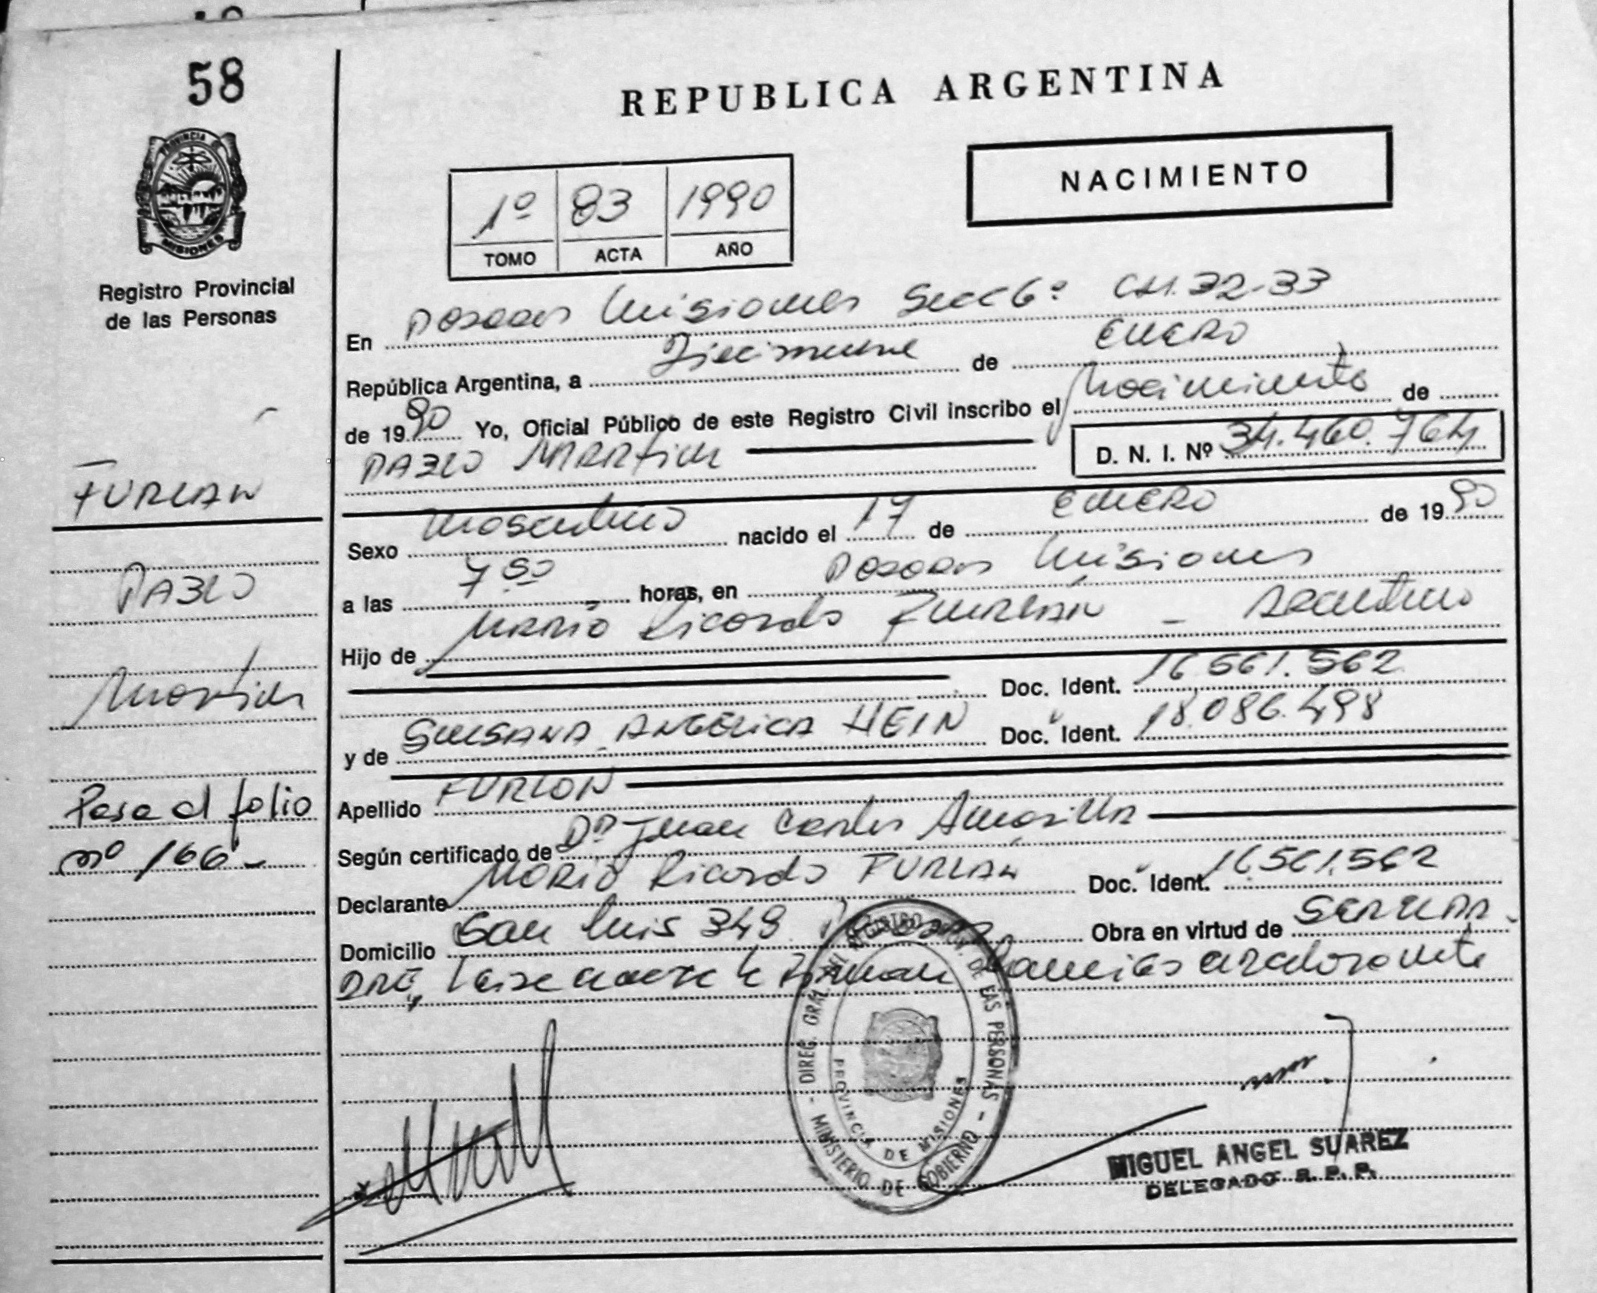 58
REPUBLICA ARGENTINA
PROVINCIA DE
MISIONES
Registro Provincial
de las Personas
NACIMIENTO
1º 83 1990
TOMO ACTA AÑO
En Posadas Misiones Secc 6ª CH. 32-33
República Argentina, a Diecinueve de ENERO
de 1990 Yo, Oficial Público de este Registro Civil inscribo el Nacimiento de
PABLO MARTIN
D. N. I. Nº 34.460.764
FURLAN
PABLO
Martin
Pasa al folio
nº 166-
Sexo Masculino nacido el 17 de ENERO de 1990
a las 7 50 horas, en Posadas Misiones
Hijo de MARIO Ricardo FURLAN - Argentino
Doc. Ident. 16.561.562
y de SUSANA ANGELICA HEIN Doc. Ident. 18.086.498
Apellido FURLAN
Según certificado de Dr Juan Carlos Amarilla
Declarante MARIO Ricardo FURLAN Doc. Ident. 16.561.562
Domicilio San Luis 349 Posadas Obra en virtud de SER PADRE,
DIREC. GRAL. DEL REGISTRO PROV. DE LAS PERSONAS - MINISTERIO DE GOBIERNO -
PROVINCIA DE MISIONES
MIGUEL ANGEL SUAREZ
DELEGADO R. P. P.